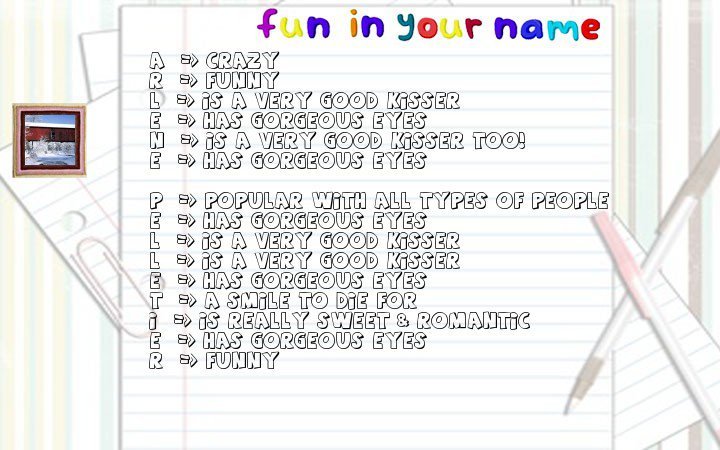 fun in your name
A => CRAZY
R => FUNNY
L => iS A VERY GOOD KiSSER
E => HAS GORGEOUS EYES
N => iS A VERY GOOD KiSSER TOO!
E => HAS GORGEOUS EYES
P => POPULAR WiTH ALL TYPES OF PEOPLE
E => HAS GORGEOUS EYES
L => iS A VERY GOOD KiSSER
L => iS A VERY GOOD KiSSER
E => HAS GORGEOUS EYES
T => A SMiLE TO DiE FOR
i => iS REALLY SWEET & ROMANTiC
E => HAS GORGEOUS EYES
R => FUNNY